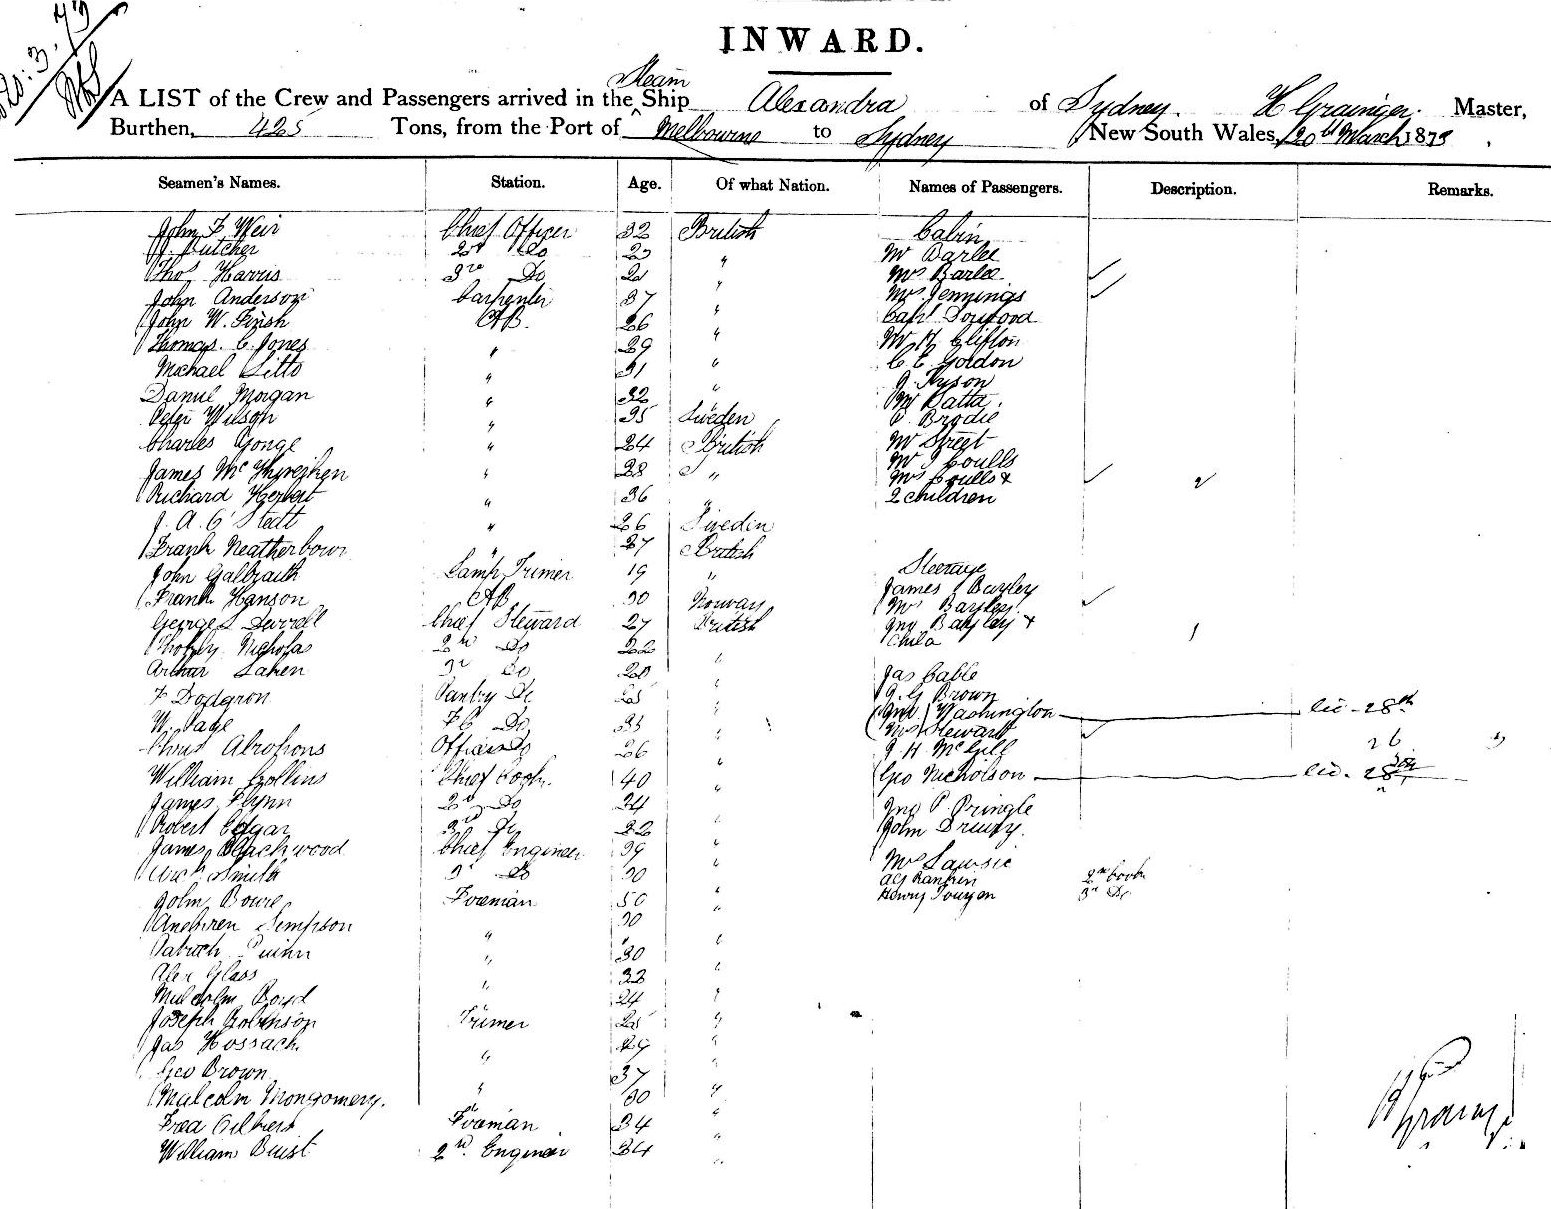 20.3.73
INWARD.
Steam
A LIST of the Crew and Passengers arrived in the ^ Ship Alexandra of Sydney. H Grainger. Master,
Burthen, 425 Tons, from the Port of Melbourne to Sydney New South Wales, 20th March 1873
Seamen's Names. Station. Age. Of what Nation. Names of Passengers. Description. Remarks.
John F Weir Chief Officer 32 British Cabin
J. Butcher 2nd Do 23 " Mr Barlee
Thos Harris 3rd Do 21 " Mrs Barlee
John Anderson Carpenter 37 " Mrs Jennings
John W. Finsh AB. 26 " Capt
Thomas C. Jones " 29 " Mr H Clifton
Michael " 31 " C E Gordon
Daniel Morgan " 32 " J Tyson
Mr Batta.
Peter Wilson " 35 Sweden C. Brodie
Charles Yonge " 24 British Mr Street
Mr J Coulls
James Mc " 28 " Mrs Coulls & 2
Richard Herbert " 36 " 2 children
J. A. " 26 Sweden
Frank " 27 British
John Galbraith Lamp Trimer 19 " Steerage
James Bayley
Frank Hanson AB 30 Norway Mrs Bayley.
George Chief Steward 27 British Jno Bayley &
child 1
Nicholas 2nd Do 22 "
Arthur 3rd Do 20 " Jas Cable
F Dodgson Pantry Do 25 " J. G Brown
W. Page F C Do 35 " Washington lic - 28th
Mrs Stewart
Chris Officers Do 26 " J H McGill 26
William Collins Chief Cook. 40 " Geo Nicholson lic. 28
James Flynn 2nd Do 24 " Jno P. Pringle
Robert Edgar 3rd Do 22 " John Drewry.
James Blackwood Chief Engineer 39 " Mrs
Arch. Smith 3rd Do 30 " Rankin 2nd Cook
John Bowie Foeman 50 " Henry 3rd Do
Andrew Simpson " 30 "
Patrick Quinn " 30 "
Alex Glass " 32 "
Malcolm Boyd " 24 "
Joseph Robinson Trimer 25 "
Jas Hossack. " 29 "
Geo Brown " 37 "
Malcolm Montgomery. " 30 "
Fred Gilbert Foeman 34 "
William Buist 2nd Engineer 34 "
H Grainger